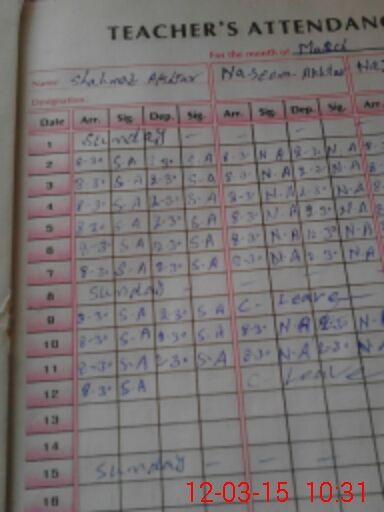 TEACHER'S ATTENDANC
For the month of March
Name Shahnaz Akhtar Naseem Akhtar
Designation
Date Arr. Sig. Dep. Sig. Arr. Sig. Dep. Sig. Arr.
1 Sunday
2 8-30 S-A S-A 8-30 N-A 2-30 N-A
3 8-30 S-A 2-30 S-A 8-30 N-A 2-30 N-A
4 8-30 S-A 2-30 S-A 8-30 N-A 2-30 N-A
5 8-30 S-A 2-30 S-A 8-30 N-A 2-30 N-A
6 8-30 S-A 12-30 S-A 8-30 N-A 12-30 N-A
7 8-30 S-A 2-30 S-A 8-30 N-A 2-30 N-A
8 Sunday
9 8-30 S-A 2-30 S-A C- Leave
10 8-30 S-A 2-30 S-A 8-30 N-A 2-30 N-A
11 8-30 S-A 2-30 S-A 8-30 N-A 2-30 N-A
12 8-30 S A C- Leave
13
14
15 Sunday
16
12-03-15 10:31